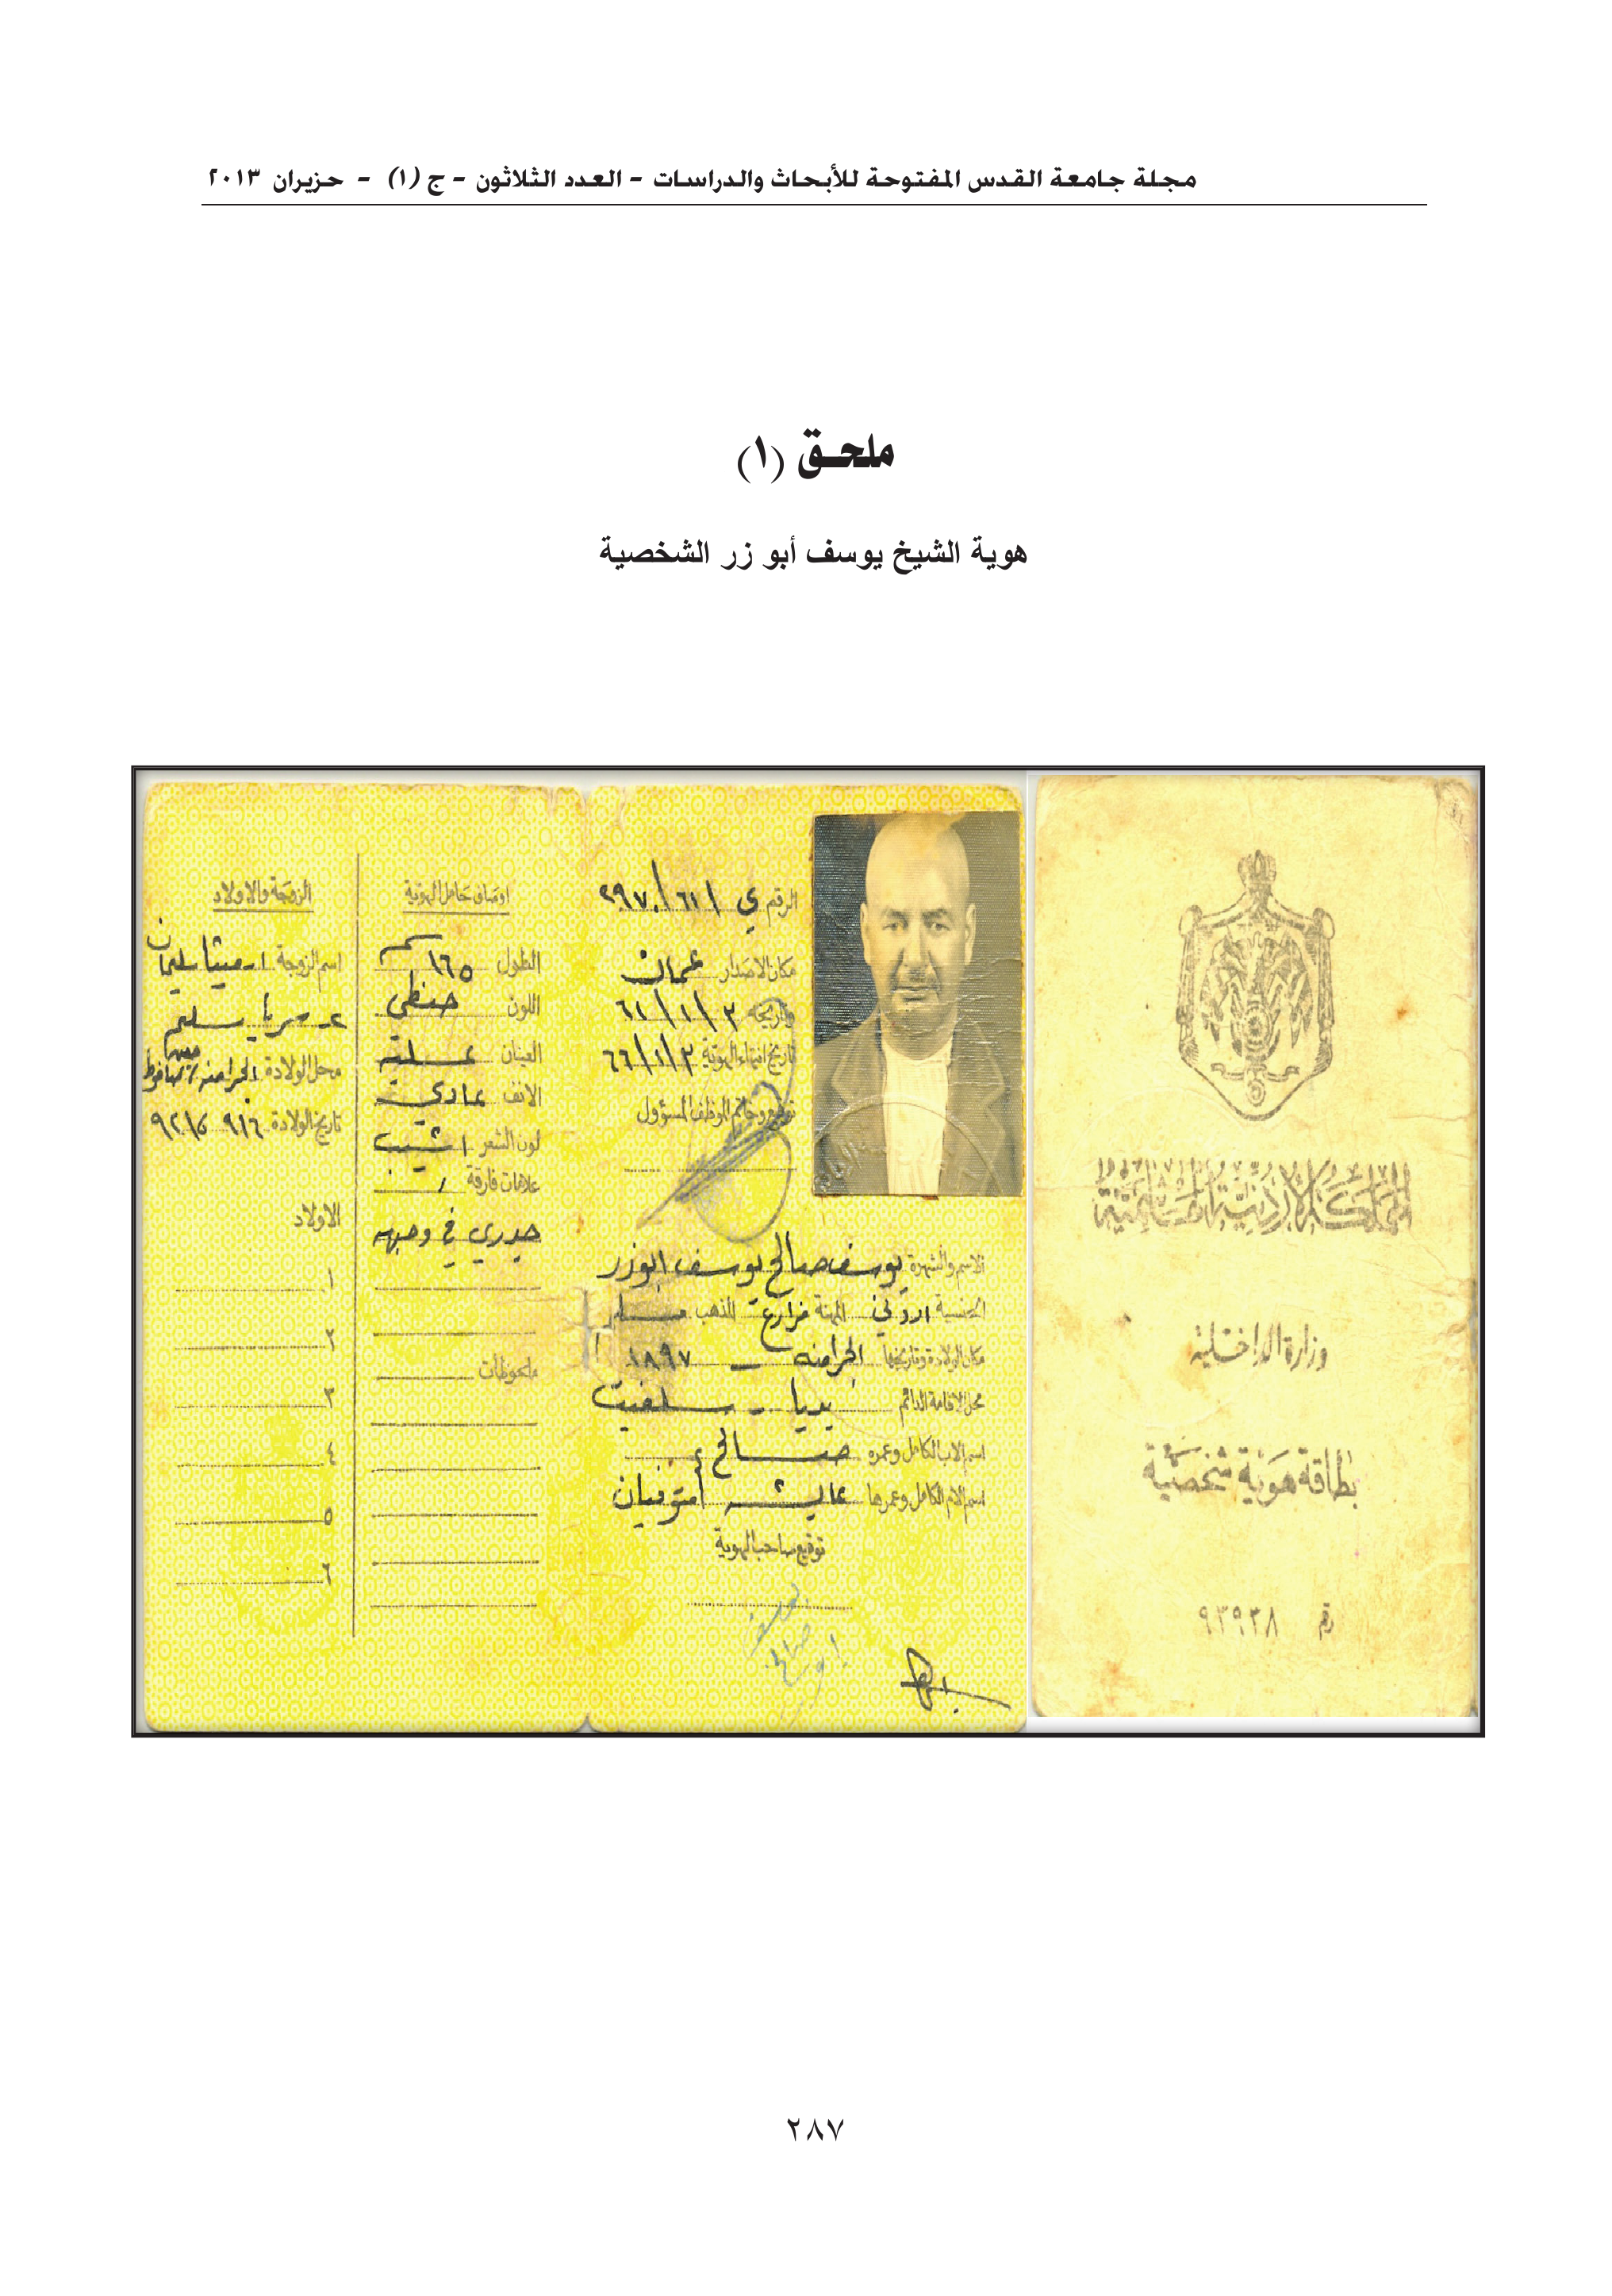 مجلة جامعة القدس المفتوحة للأبحاث والدراسات - العدد الثلاثون - ج (١) - حزيران ٢٠١٣
ملحق (١)
هوية الشيخ يوسف أبو زر الشخصية
المملكة الأردنية الهاشمية
وزارة الداخلية
بطاقة هوية شخصية
رقم ٩٣٩٣٨
الرقم ي / ٦١ / ٢٩٧٠
مكان الاصدار عمان
وتاريخه ٢ / ١ / ٦١
تاريخ انتهاء الهوية ٢ / ١ / ٦٦
توقيع وخاتم الموظف المسؤول
الاسم والشهرة يوسف صالح يوسف ابوزر
الجنسية اردني المهنة مزارع المذهب مسلم
مكان الولادة وتاريخها الجرامنه - ١٨٩٧
محل الاقامة الدائم بديا - سلفيت
اسم الاب الكامل وعمره صالح
اسم الام الكامل وعمرها عايشه متوفيان
توقيع صاحب الهوية
اوصاف حامل الهوية
الطول ١٦٥ سم
اللون حنطي
العينان عسلية
الانف عادي
لون الشعر اشيب
علامات فارقة
جدري في وجهه
ملحوظات
الزوجة والاولاد
اسم الزوجة سليمان
محل الولادة الجرامنه /
تاريخ الولادة ٩١٦
الاولاد
١
٢
٣
٤
٥
٦
٢٨٧